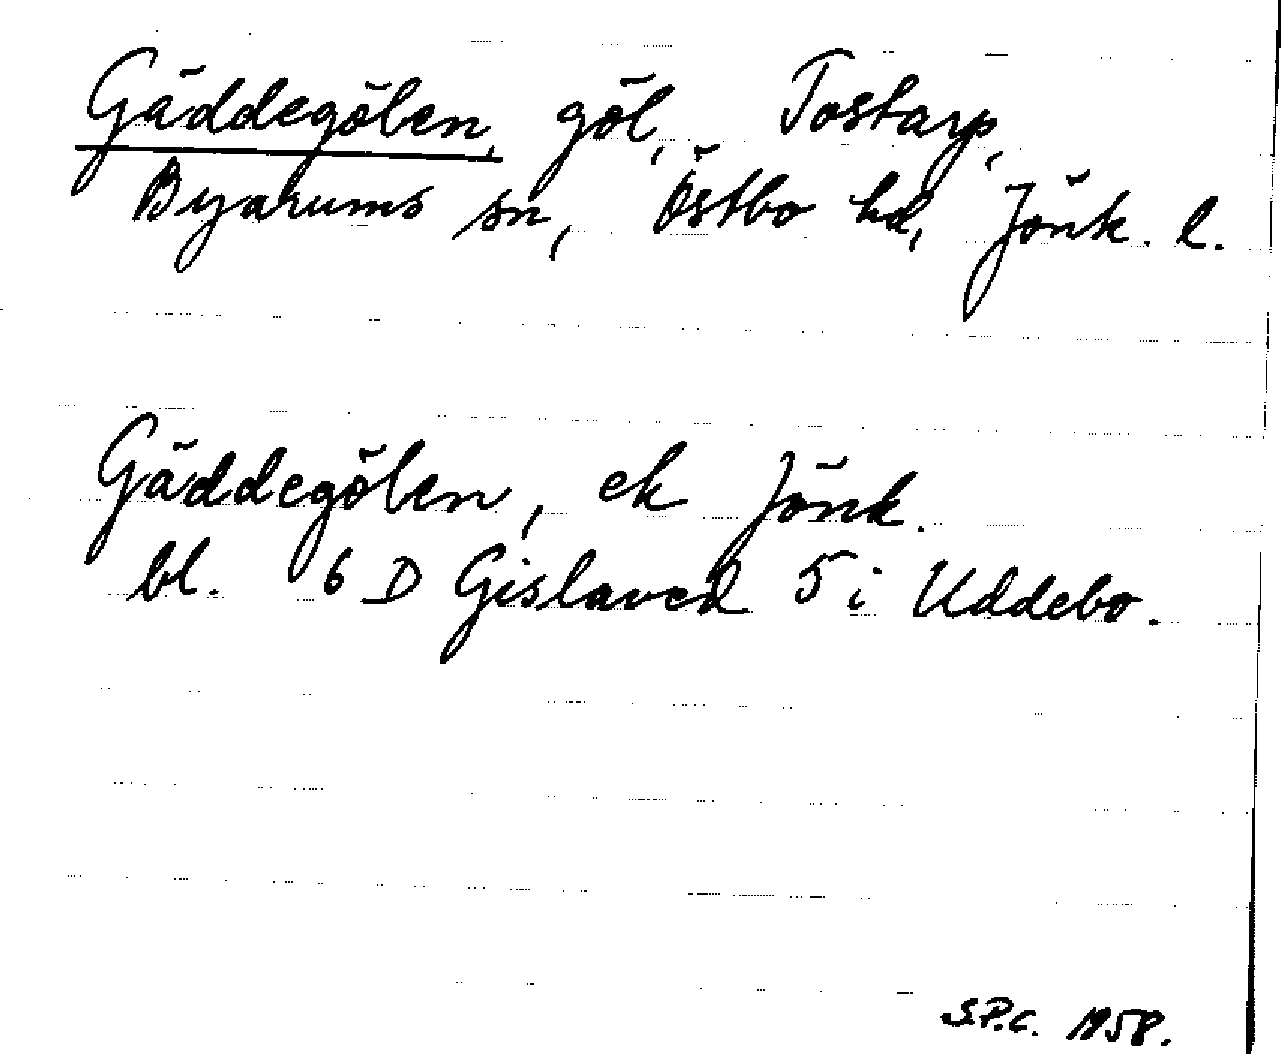 Gäddegölen, göl, Tostarp,
Byarums sn, Östbo hd, Jönk. l.
Gäddegölen, ek Jönk.
bl. 6 D Gislaved 5 i Uddebo.
S.P.C. 1958.